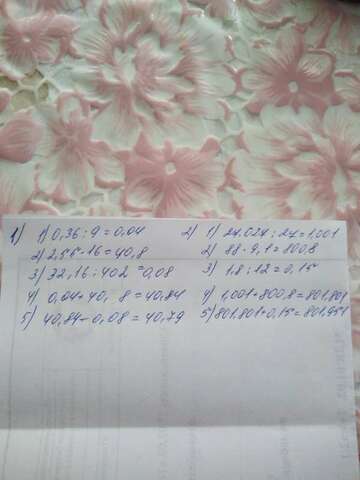 1) 1) 0,36 : 9 = 0,04
2) 2,55 · 16 = 40,8
3) 32,16 : 402 = 0,08
4) 0,04 + 40, 8 = 40,84
5) 40,84 - 0,08 = 40,79
2) 1) 24,024 : 24 = 1,001
2) 88 · 9,1 = 800,8
3) 1,8 : 12 = 0,15
4) 1,001 + 800,8 = 801,801
5) 801,801 + 0,15 = 801,951